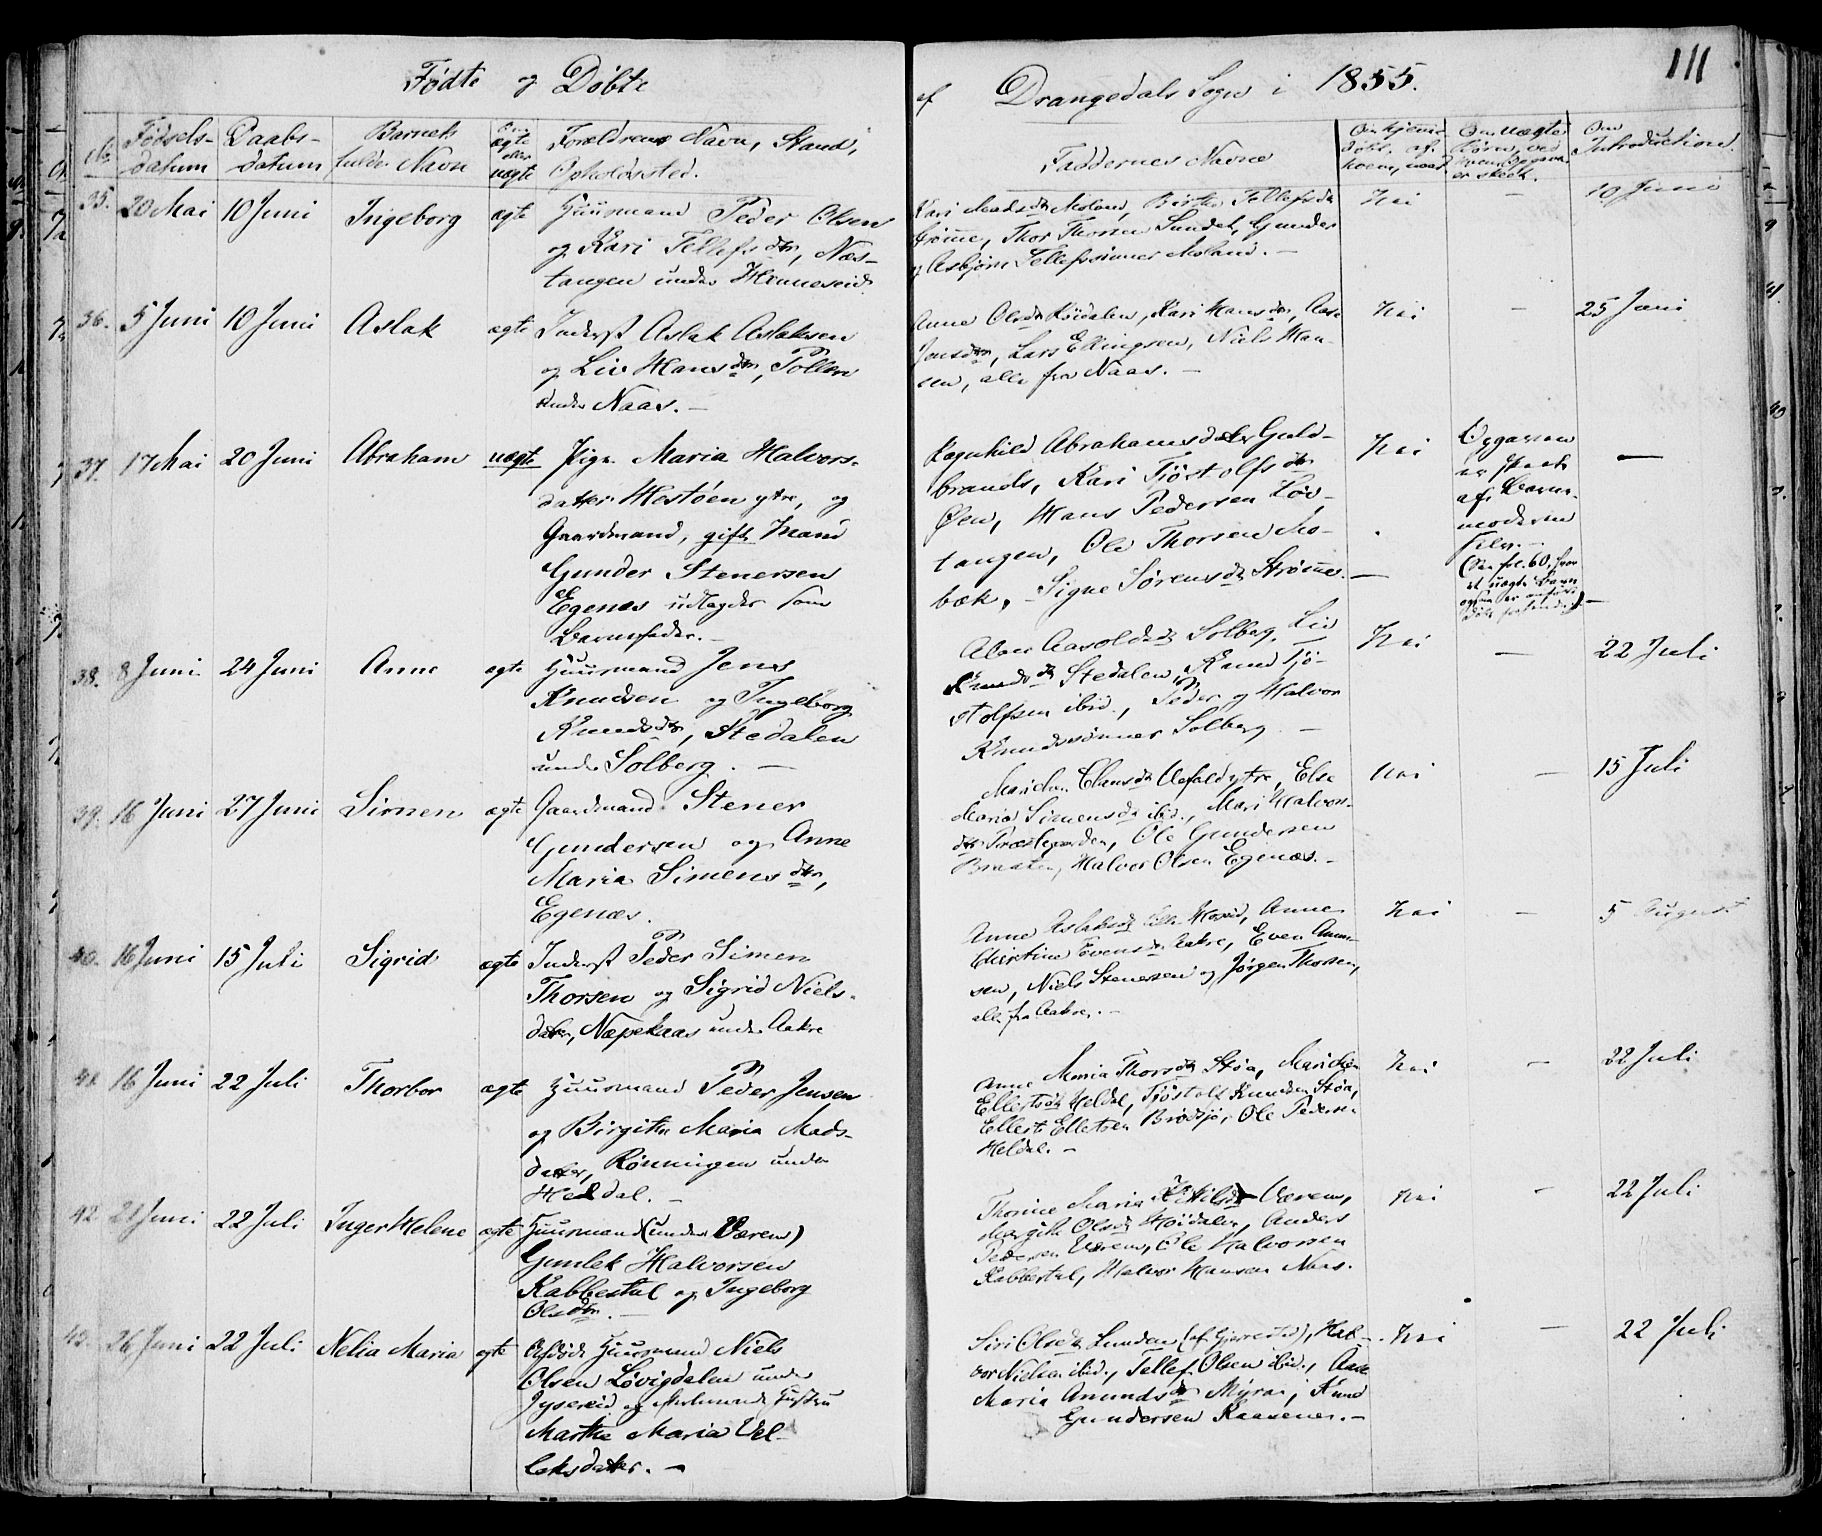 Fødte og Døbte
af Drangedals Sogn i 1855.
111
No
Fødsels-
datum
Daabs-
datum
Barnets
fulde Navn
Om
ægte
eller
uægte
Forældrenes Navn, Stand,
Opholdssted.
Faddernes Navne
Om hjemme-
døbt, af
hvem, naar
Om uægte
Børn, ved
hvem Opgava
er skeet.
Om
Introduction.
35. 20 Mai 10 Juni Ingeborg ægte Huusmand Peder Olsen
og Kari Tellefsdtr, Næs-
tangen under Henneseid.
Kari Madsdtr Moland, Tellefsdtr
Thor Thorsen Sundet, Gunder
og Asbjørn Tellefssønner Moland. -
Nei - 10 Juni
36. 5 Juni 10 Juni Aslak ægte Inderst Aslak Aslaksen
og Liv Hansdtr, Pollen
under Naas. -
Anne Olsdtr Høidalen, Kari Hansdtr, Aase
Jensdtr, Lars Ellingsen, Niels Han-
sen, alle fra Naas. -
Nei - 25 Juni
37. 17 Mai 20 Juni Abraham uægte Pige Maria Halvors-
datter Hestøen ytre, og
Gaardmand, gift Mand
Gunder Stenersen
Egenæs udlagdes som
Barnefader. -
Ragnhild Abrahamsdatter Guld-
brands, Kari Tjøstolfsdtr
Øen, Hans Pedersen Løv-
tangen, Ole Thorsen Mo-
bæk, Signe Sørensdtr Strømme. -
Nei
Opgaven
er skeet
af Barne-
moderen
selv. -
(See fol. 60, hvor
et uægte Barn
ogsaa er anført
-
38. 8 Juni 24 Juni Anne ægte Huusmand Jens
Knudsen og Ingeborg
Knudsdtr, Stedalen
under Solberg. -
Aasoldsdtr Solberg, Liv
Knudsdtr Stedalen, Knud Tjø-
stolfsen ibid., Peder og Halvor
Knudssønner Solberg. -
Nei - 22 Juli
39. 16 Juni 27 Juni Simen ægte Gaardmand Stener
Gundersen og Anne
Maria Simensdtr,
Egenæs.
Maricken Clausdtr ytre, Else
Maria Simensdtr ibid., Mari Halvors-
dtr Præstegaarden, Ole Gundersen
Braaten, Halvor Olsen Egenæs. -
Nei - 15 Juli
40. 16 Juni 15 Juli Sigrid ægte Inderst Peder Simen
Thorsen og Sigrid Niels-
datter, Næpekaas under Aakre
Anne Aslaksdtr Anne
Christine Evensdtr Aakre, Even Amun-
sen, Niels Stenersen og Jørgen Thorsen,
alle fra Aakre. -
Nei - 5 August
41. 16 Juni 22 Juli Thorbor ægte Huusmand Peder Jensen
og Birgitte Maria Mads-
datter, Rønningen under
Heldal. -
Anne Maria Thorsdtr Støa, Maricken
Ellertsdtr Heldal, Tjøstolf Knudsen Støa,
Ellert Ellertsen Brødsjø, Ole Pedersen
Heldal. -
Nei - 22 Juli
42. 21 Juni 22 Juli Inger Helene ægte Huusmand (under Væren)
Gunlek Halvorsen
Kabbestul og Ingeborg
Olsdtr. -
Thorine Maria Kittilsdtr Væren,
Margith Olsdtr Høidalen, Anders
Pedersen Væren, Ole Halvorsen
Kabbestul, Halvor Hansen Naas.
Nei - 22 Juli
43. 26 Juni 22 Juli Nelia Maria ægte Afdøde Huusmand Niels
Olsen Løvigdalen under
og efterlevende Hustru
Marthe Maria Vel-
leksdatter. -
Siri Olsdtr Lunden (af Gjerrestad), Hal-
vor Nielsen ibid., Tellef Olsen ibid., Aase
Maria Amundsdtr Myra, Knud
Gundersen Kaasene. -
Nei - 22 Juli